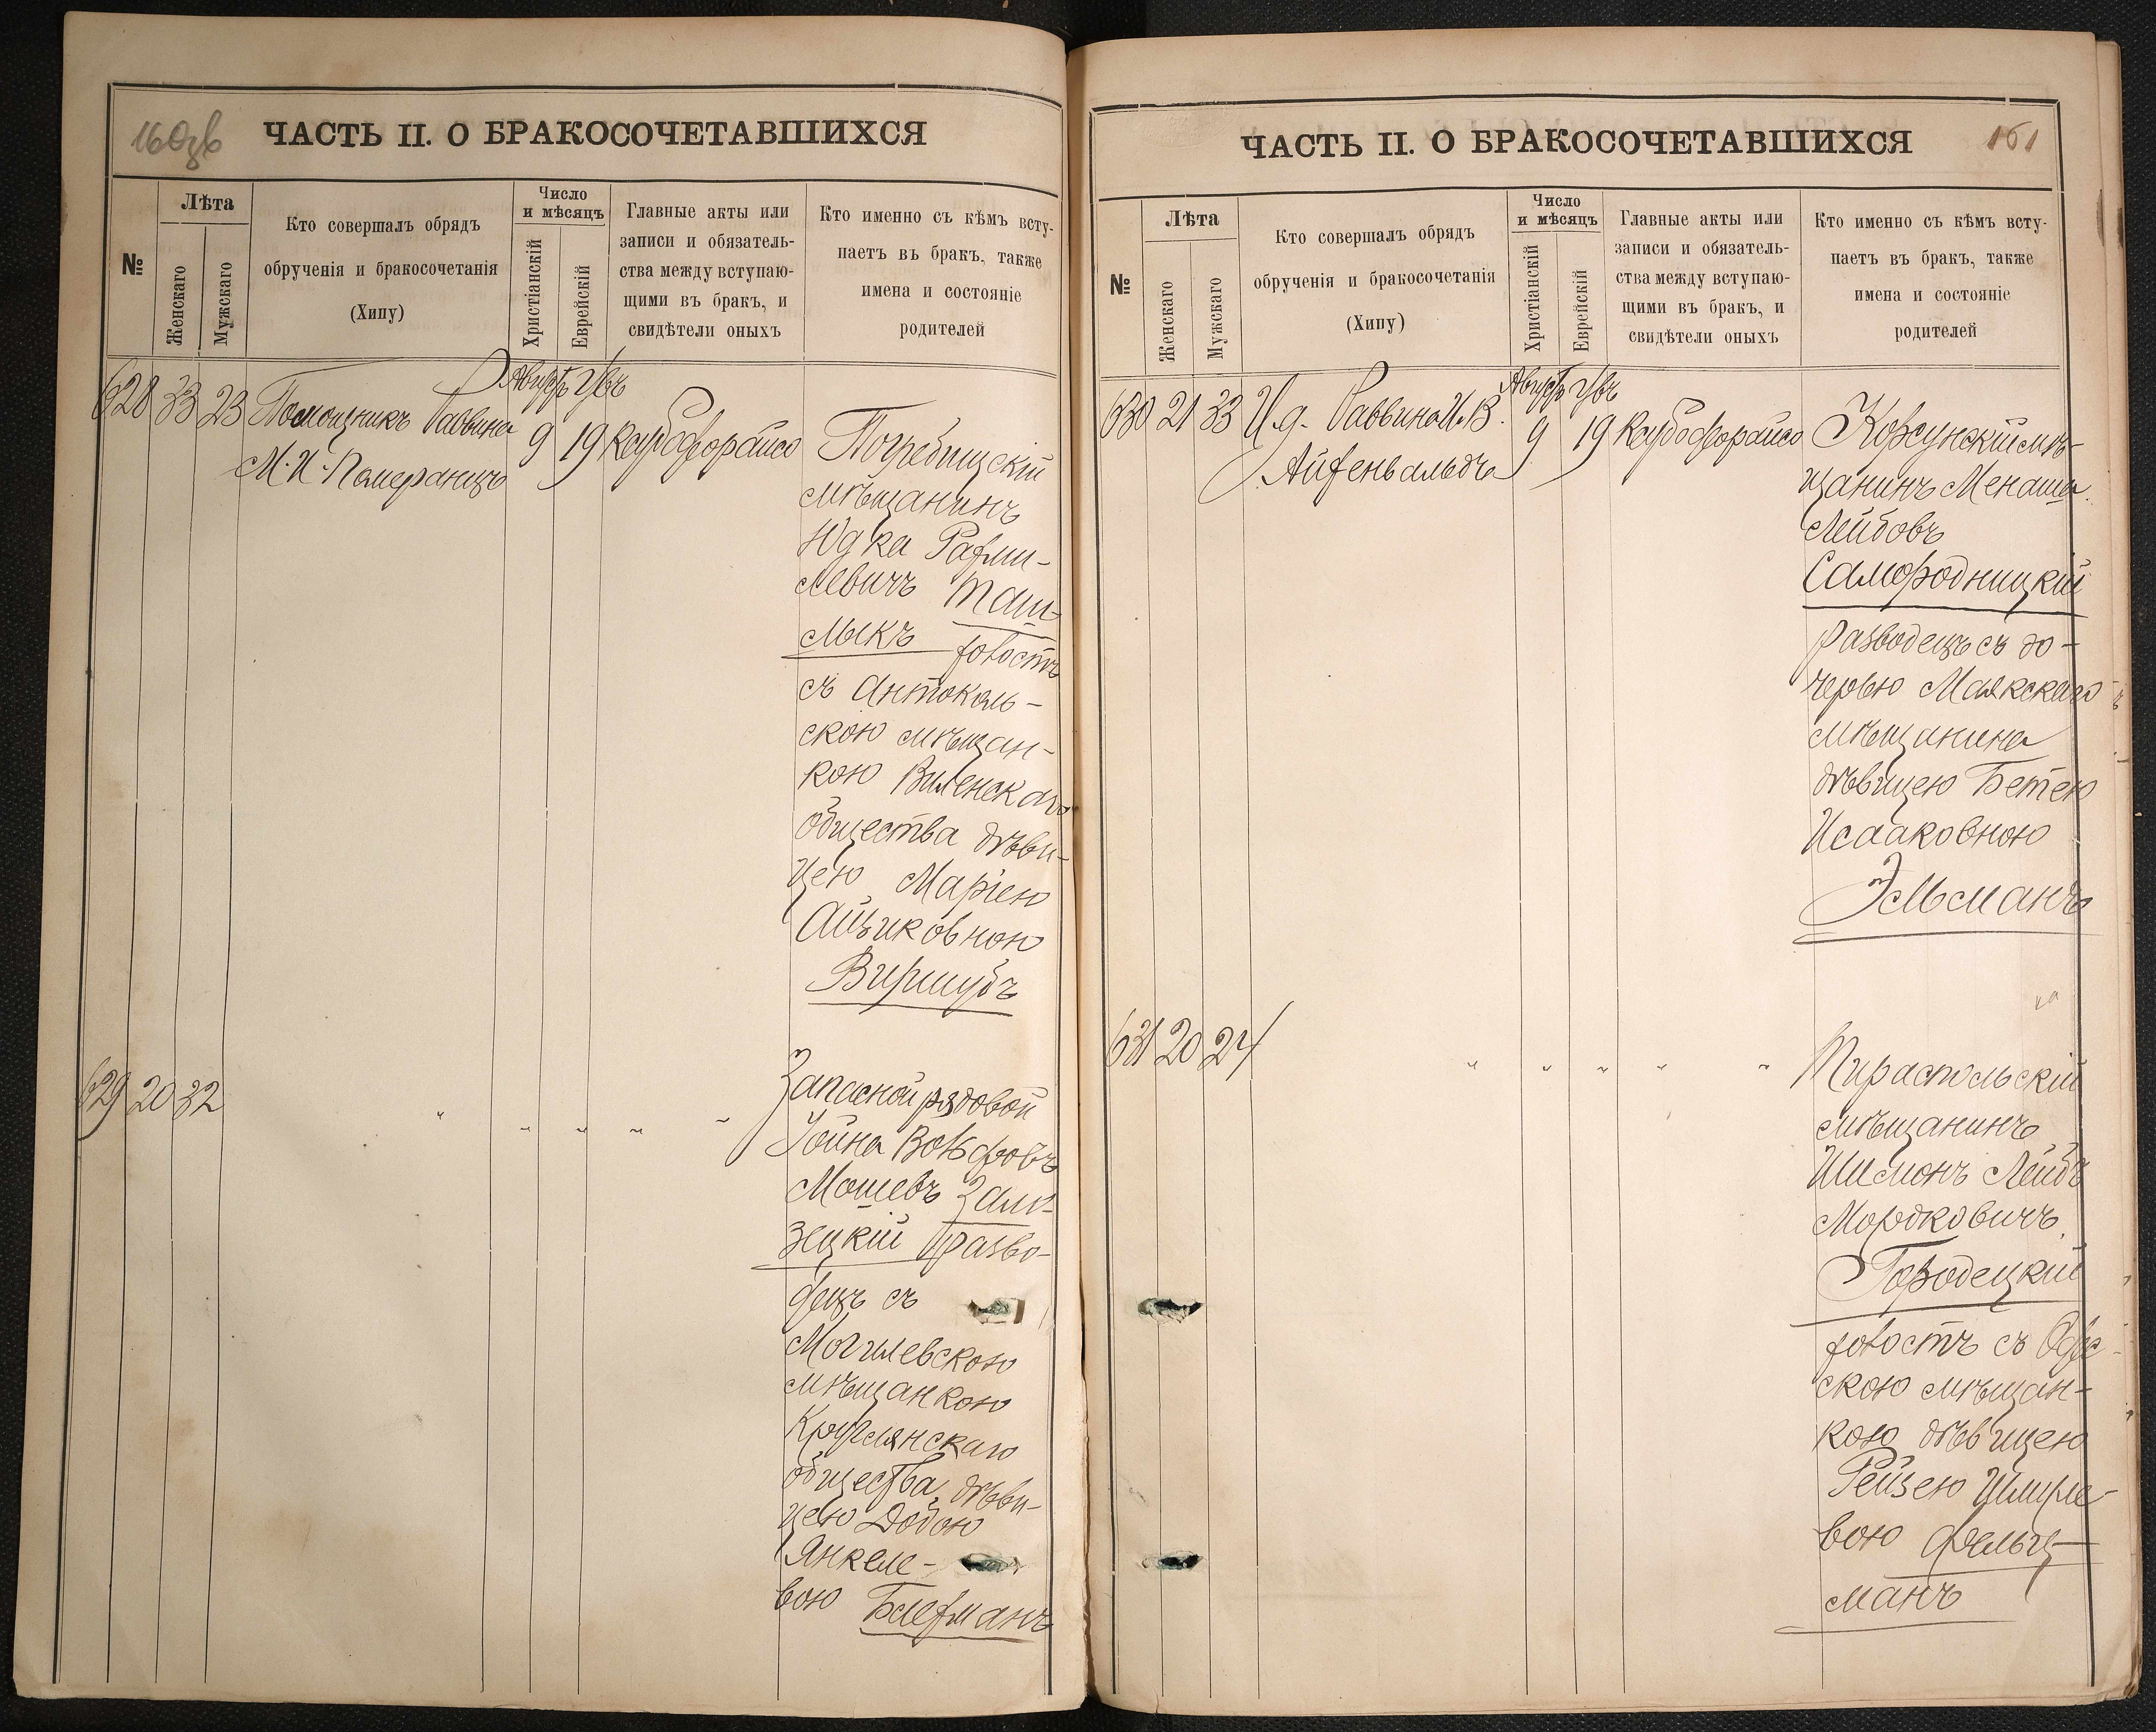 160зв
ЧАСТЬ II. О БРАКОСОЧЕТАВШИХСЯ
№
Лѣта
Женскаго
Мужскаго
Кто совершалъ обрядъ
обрученія и бракосочетанія
(Хипу)
Число
и мѣсяцъ
Христіанскій
Еврейскій
Главные акты или
записи и обязатель-
ства между вступаю-
щими въ бракъ, и
свидѣтели оныхъ
Кто именно съ кѣмъ всту-
паетъ въ бракъ, также
имена и состояніе
родителей
628 33 23 Помощникъ Раввина
М. И. Померанцъ
9 19
Погребищскій
мѣщанинъ
Юдка Рафаи-
левичъ Таш-
лыкъ холостъ
съ Антоколь-
скою мѣщан-
кою Виленскаго
общества дѣви-
цею Маріею
Ициковною
Виршубъ
629 20 32
Запасной рядовой
Іойна Вольфовъ
Мошевъ
зецкій разво-
децъ съ
Могилевскою
мѣщанкою
Круглянскаго
общества дѣви-
цею Добою
Янкеле-
вою
161
ЧАСТЬ II. О БРАКОСОЧЕТАВШИХСЯ
№
Лѣта
Женскаго
Мужскаго
Кто совершалъ обрядъ
обрученія и бракосочетанія
(Хипу)
Число
и мѣсяцъ
Христіанскій
Еврейскій
Главные акты или
записи и обязатель-
ства между вступаю-
щими въ бракъ, и
свидѣтели оныхъ
Кто именно съ кѣмъ всту-
паетъ въ бракъ, также
имена и состояніе
родителей
630 21 33 И. д. Раввина И. В.
Айзенвальдъ
9 19
Корсунскій мѣ-
щанинъ Менаша
Лейбовъ
Самородницкій
разводецъ съ до-
черью Маякскаго
мѣщанина
дѣвицею Бетею
Исааковною
Эльманъ
631 20 24
Тираспольскій
мѣщанинъ
Шимонъ Лейбъ
Мордковичъ
Городецкій
холостъ съ Одес-
скою мѣщан-
кою дѣвицею
Рейзею Шмуле-
вою Фельц-
манъ